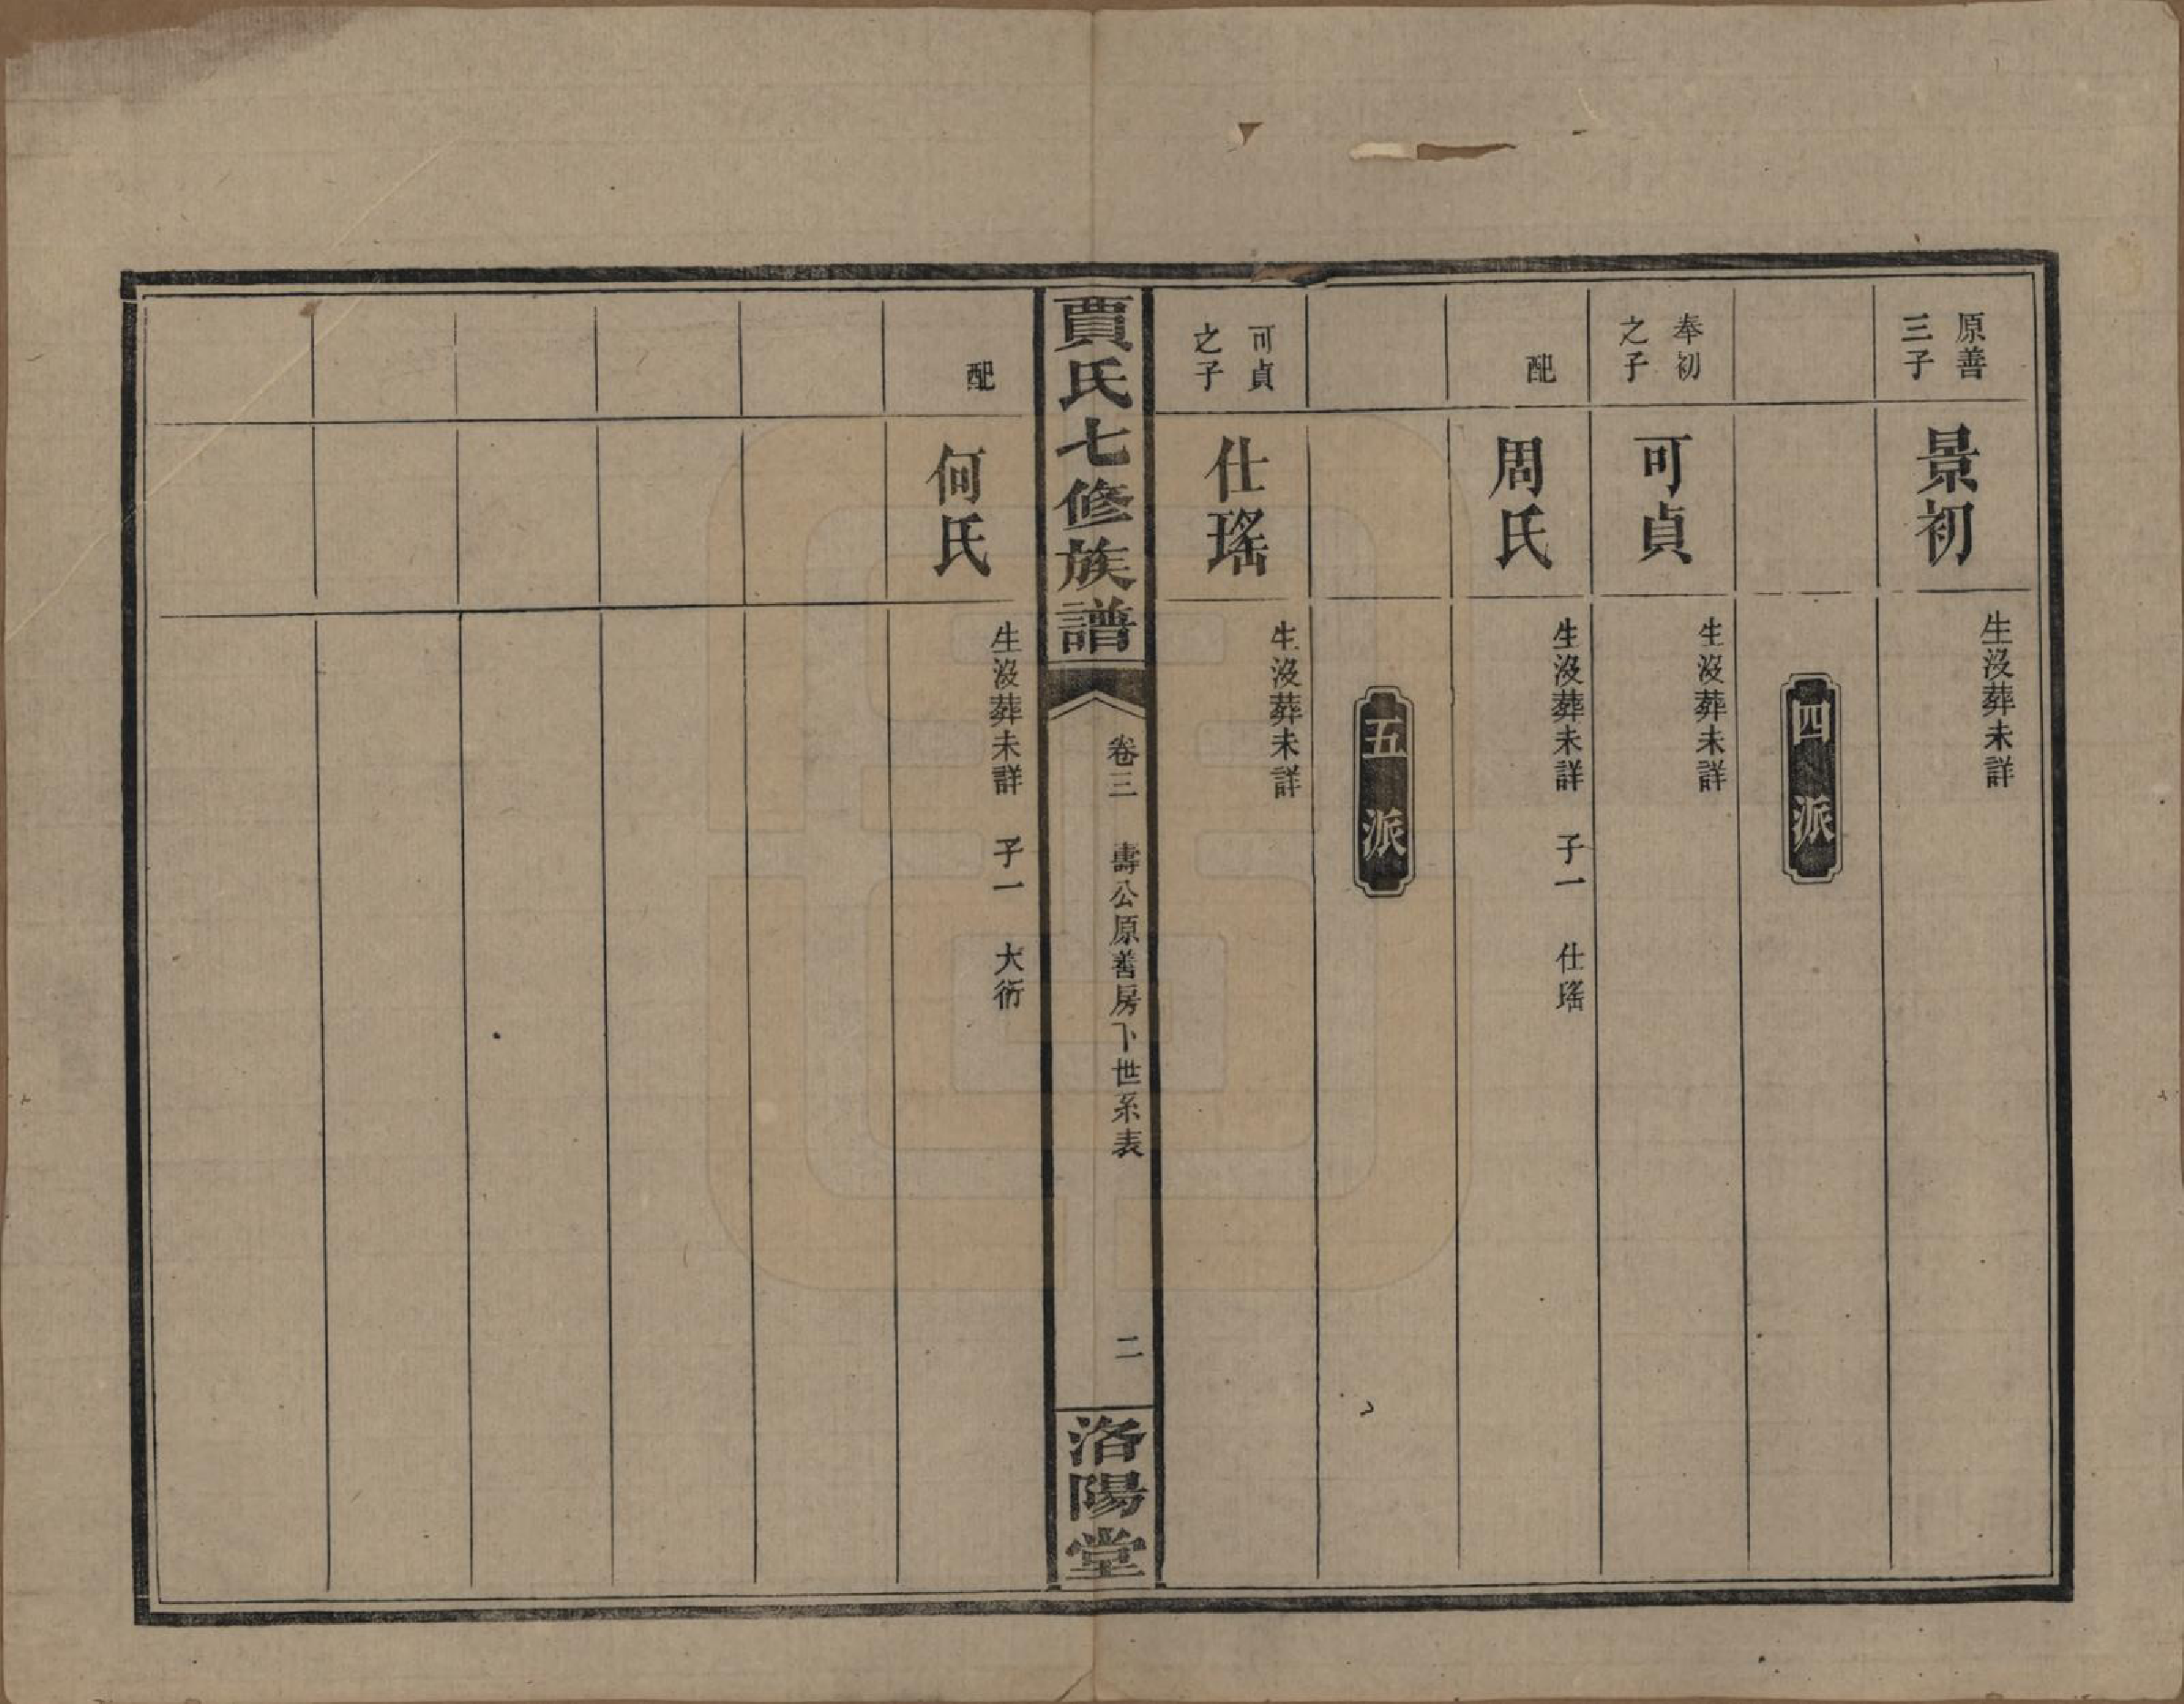 原善
三子
景初
生沒葬未詳
四派
奉初
之子
可貞
生沒葬未詳
配
周氏
生沒葬未詳 子一 仕瑤
五派
可貞
之子
仕瑤
生沒葬未詳
賈氏七修族譜
卷三 壽公原善房下世系表
二
洛陽堂
配
何氏
生沒葬未詳 子一 大衍